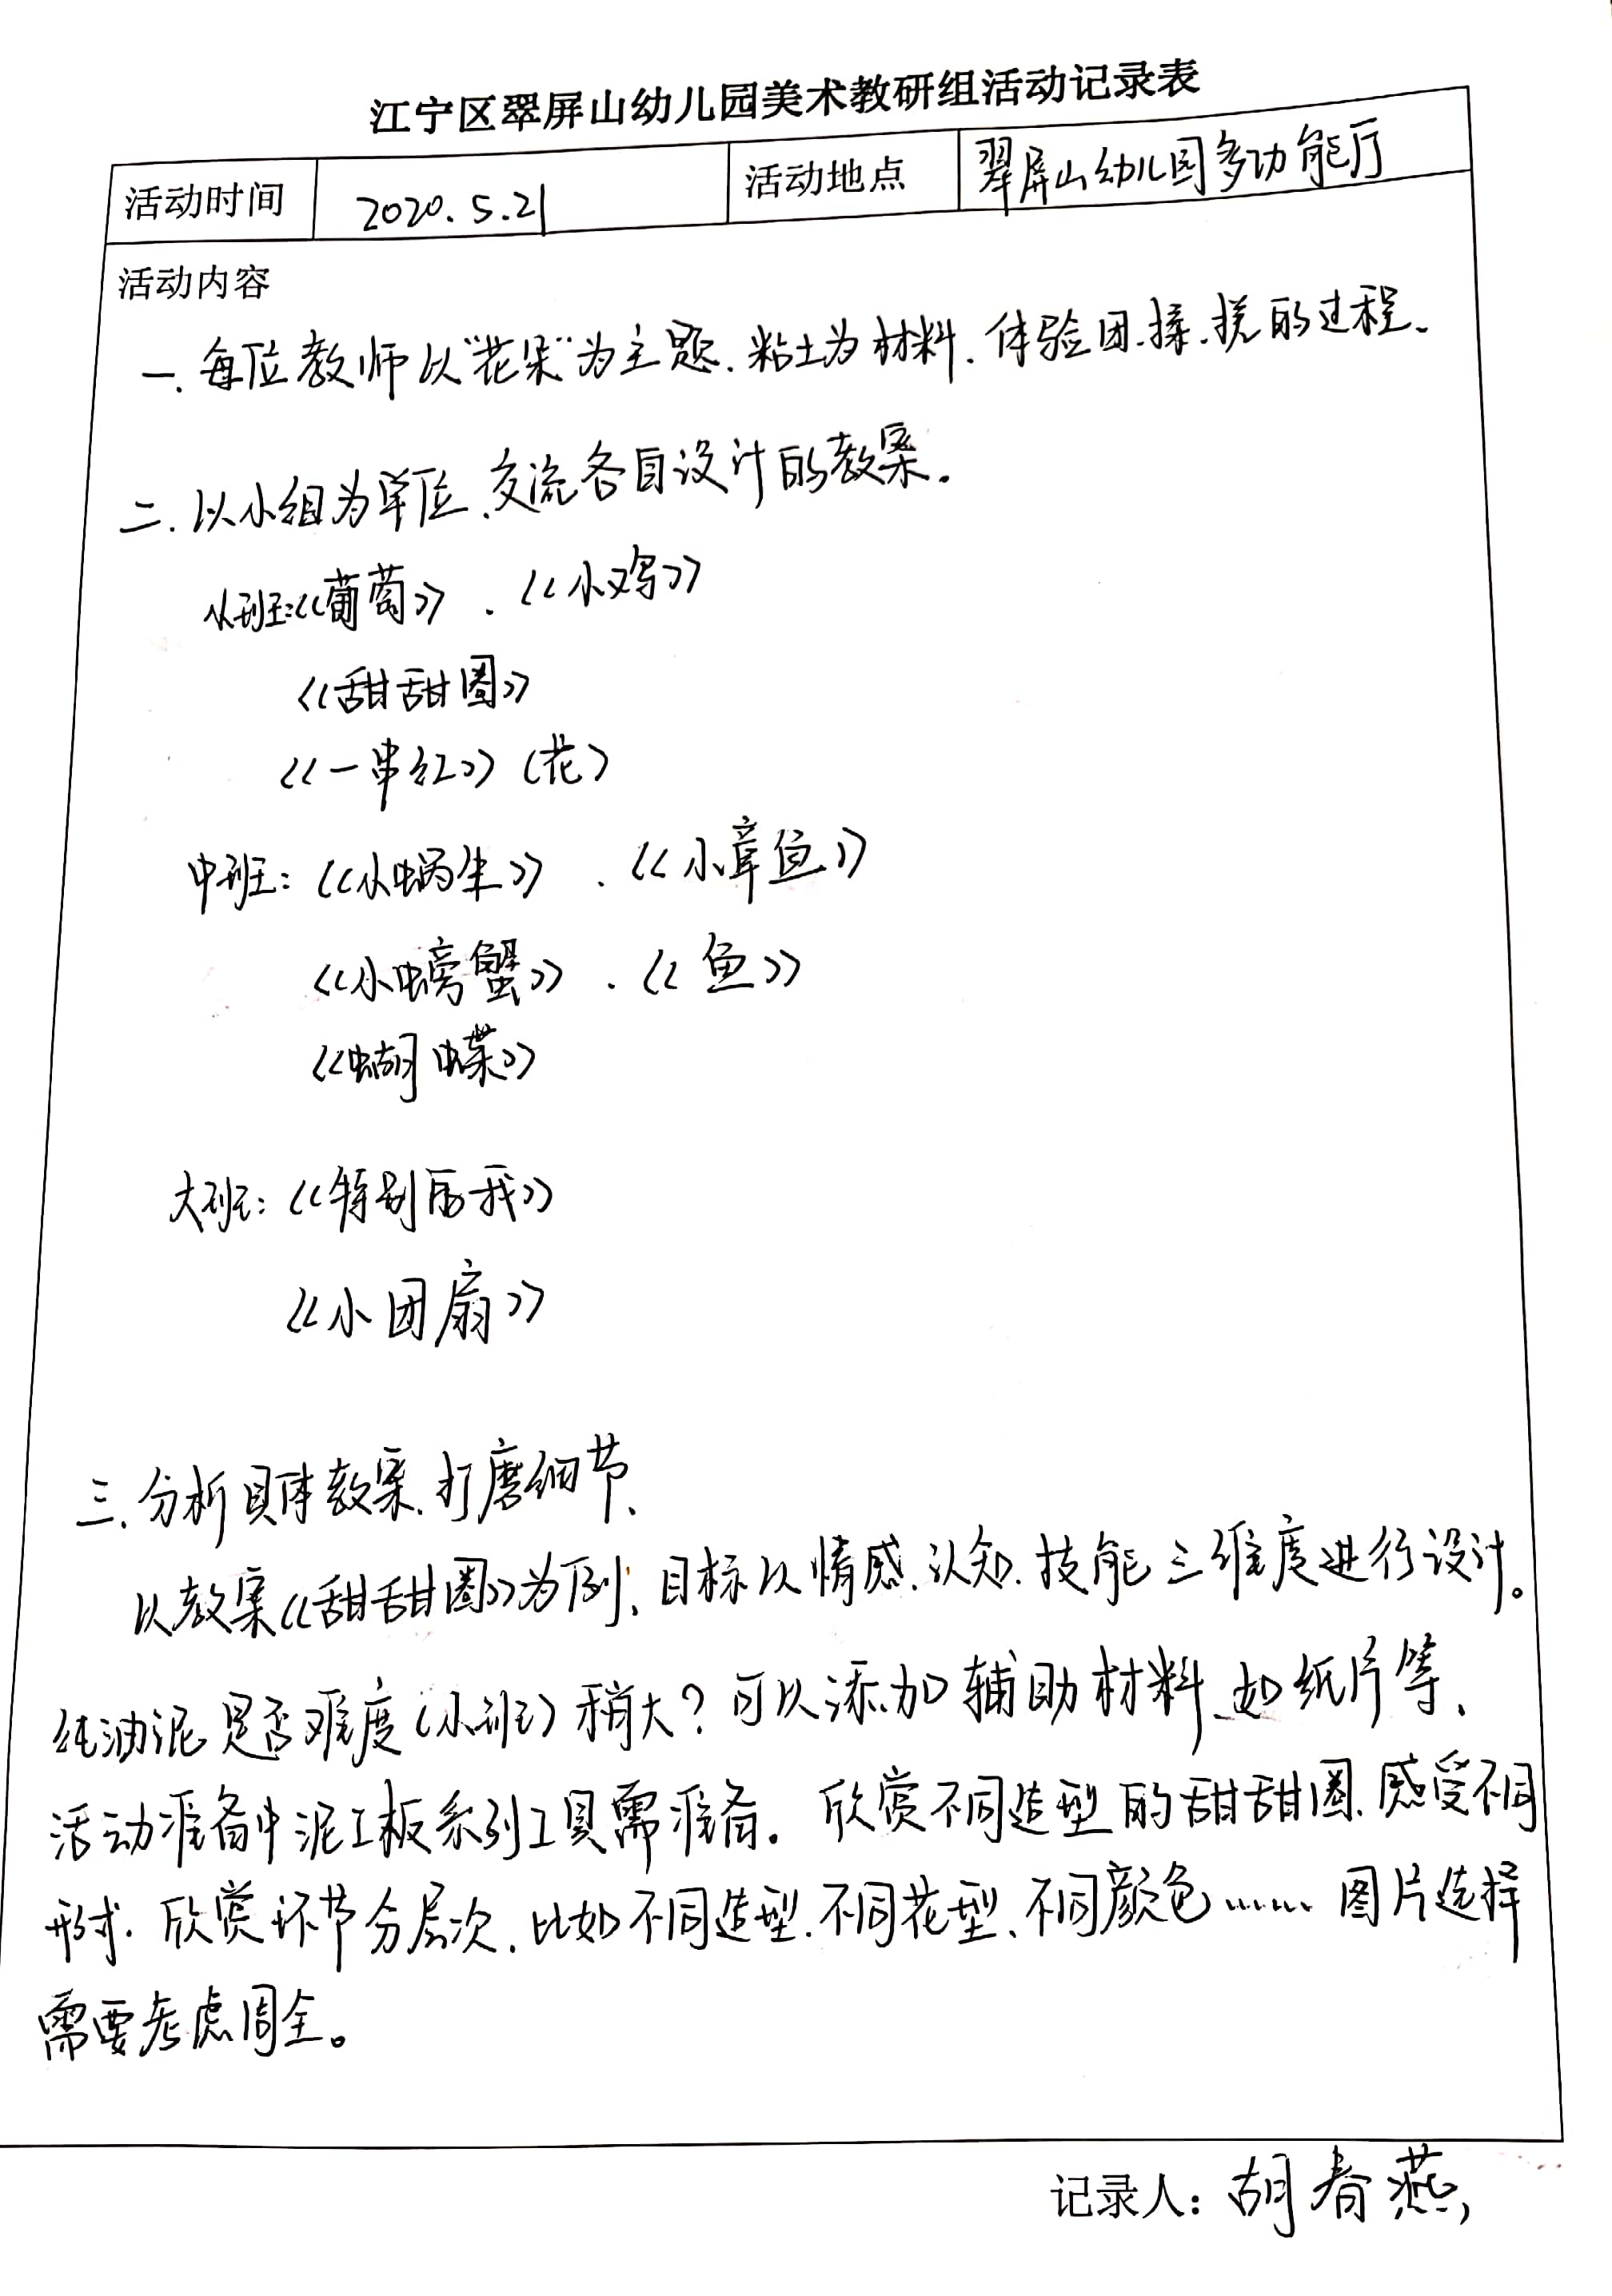 江宁区翠屏山幼儿园美术教研组活动记录表
活动时间 2020.5.21 活动地点 翠屏山幼儿园多功能厅
活动内容
一.每位教师以"花朵"为主题.粘土为材料.体验团.揉.搓的过程.
二.以小组为单位.交流各自设计的教案.
小班:《葡萄》.《小鸡》
《甜甜圈》
《一串红》(花)
中班:《小蜗牛》.《小章鱼》
《小螃蟹》.《鱼》
《蝴蝶》
大班:《特别的我》
《小团扇》
三.分析具体教案.打磨细节、
以教案《甜甜圈》为例,目标以情感.认知.技能三维度进行设计。
纯油泥是否难度(小班)稍大?可以添加辅助材料.如纸片等.
活动准备中泥工板系列工具需准备.欣赏不同造型的甜甜圈.感受不同
形式.欣赏环节分层次.比如不同造型.不同花型、不同颜色……图片选择
需要考虑周全。
记录人:胡春燕